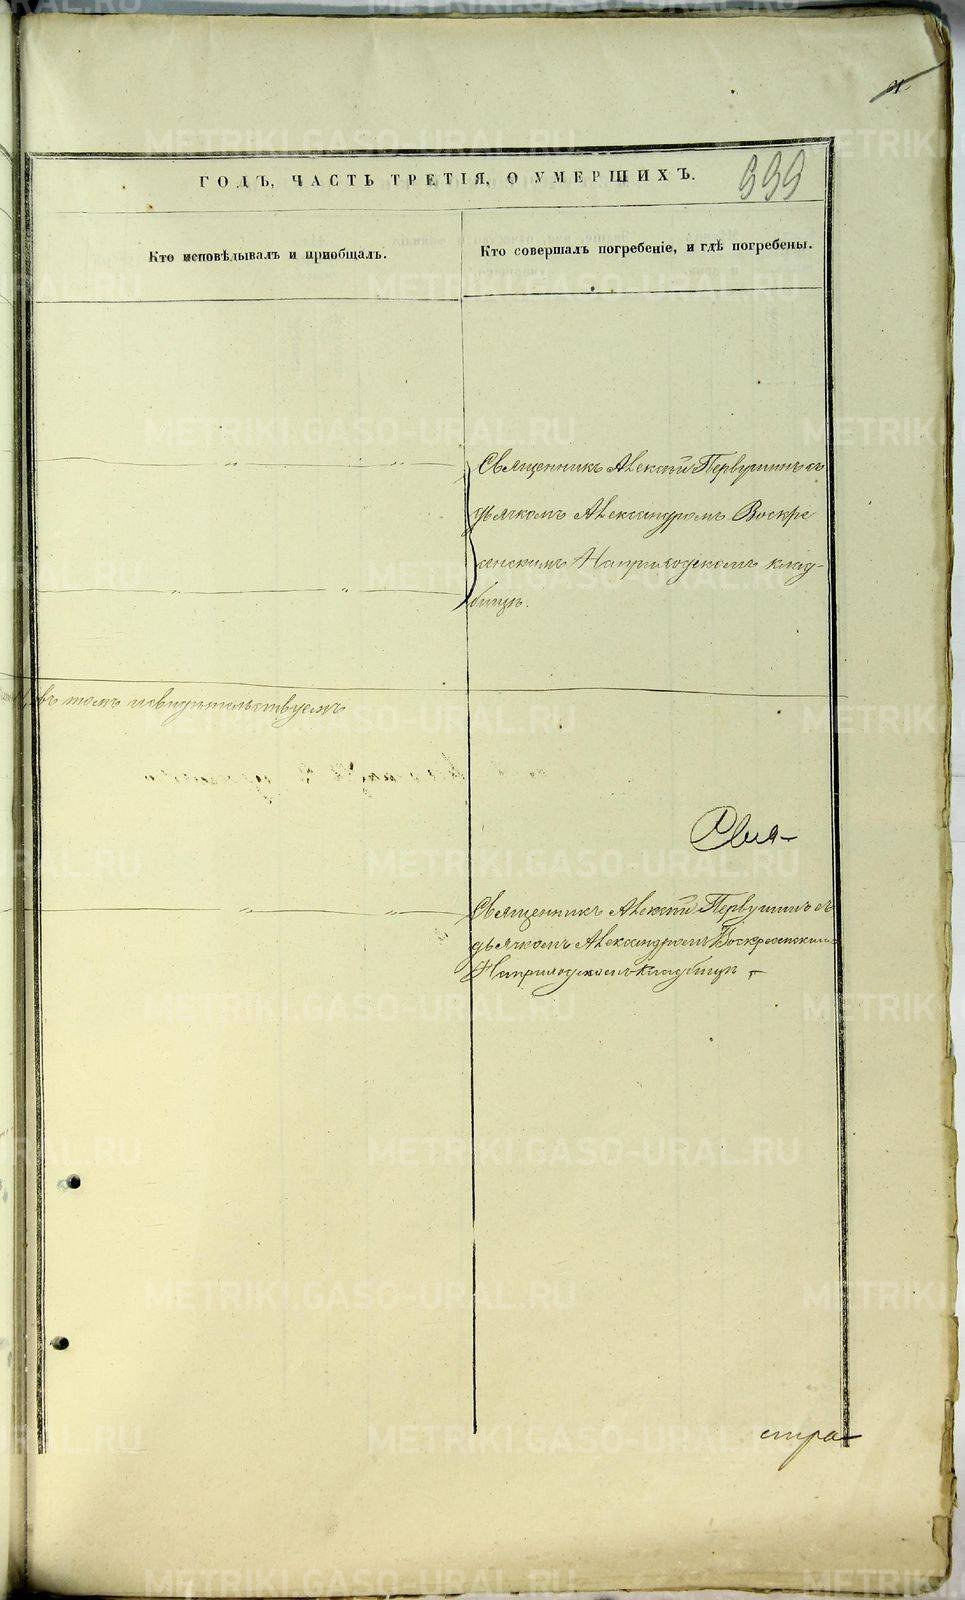 999
ГОДЪ, ЧАСТЬ ТРЕТІЯ, О УМЕРШИХЪ.
Кто исповѣдывалъ и пріобщалъ.
Кто совершалъ погребеніе, и гдѣ погребены.
Священникъ Алексѣй Первушинъ съ
дьячкомъ Александромъ Воскре
сенскимъ На приходскомъ клад-
бищѣ.
въ томъ и свидѣтельствуемъ
Священникъ Алексѣй Первушинъ съ
дьячкомъ Александромъ Воскресенскимъ
На приходскомъ кладбищѣ
стра
METRIKI.GASO-URAL.RU